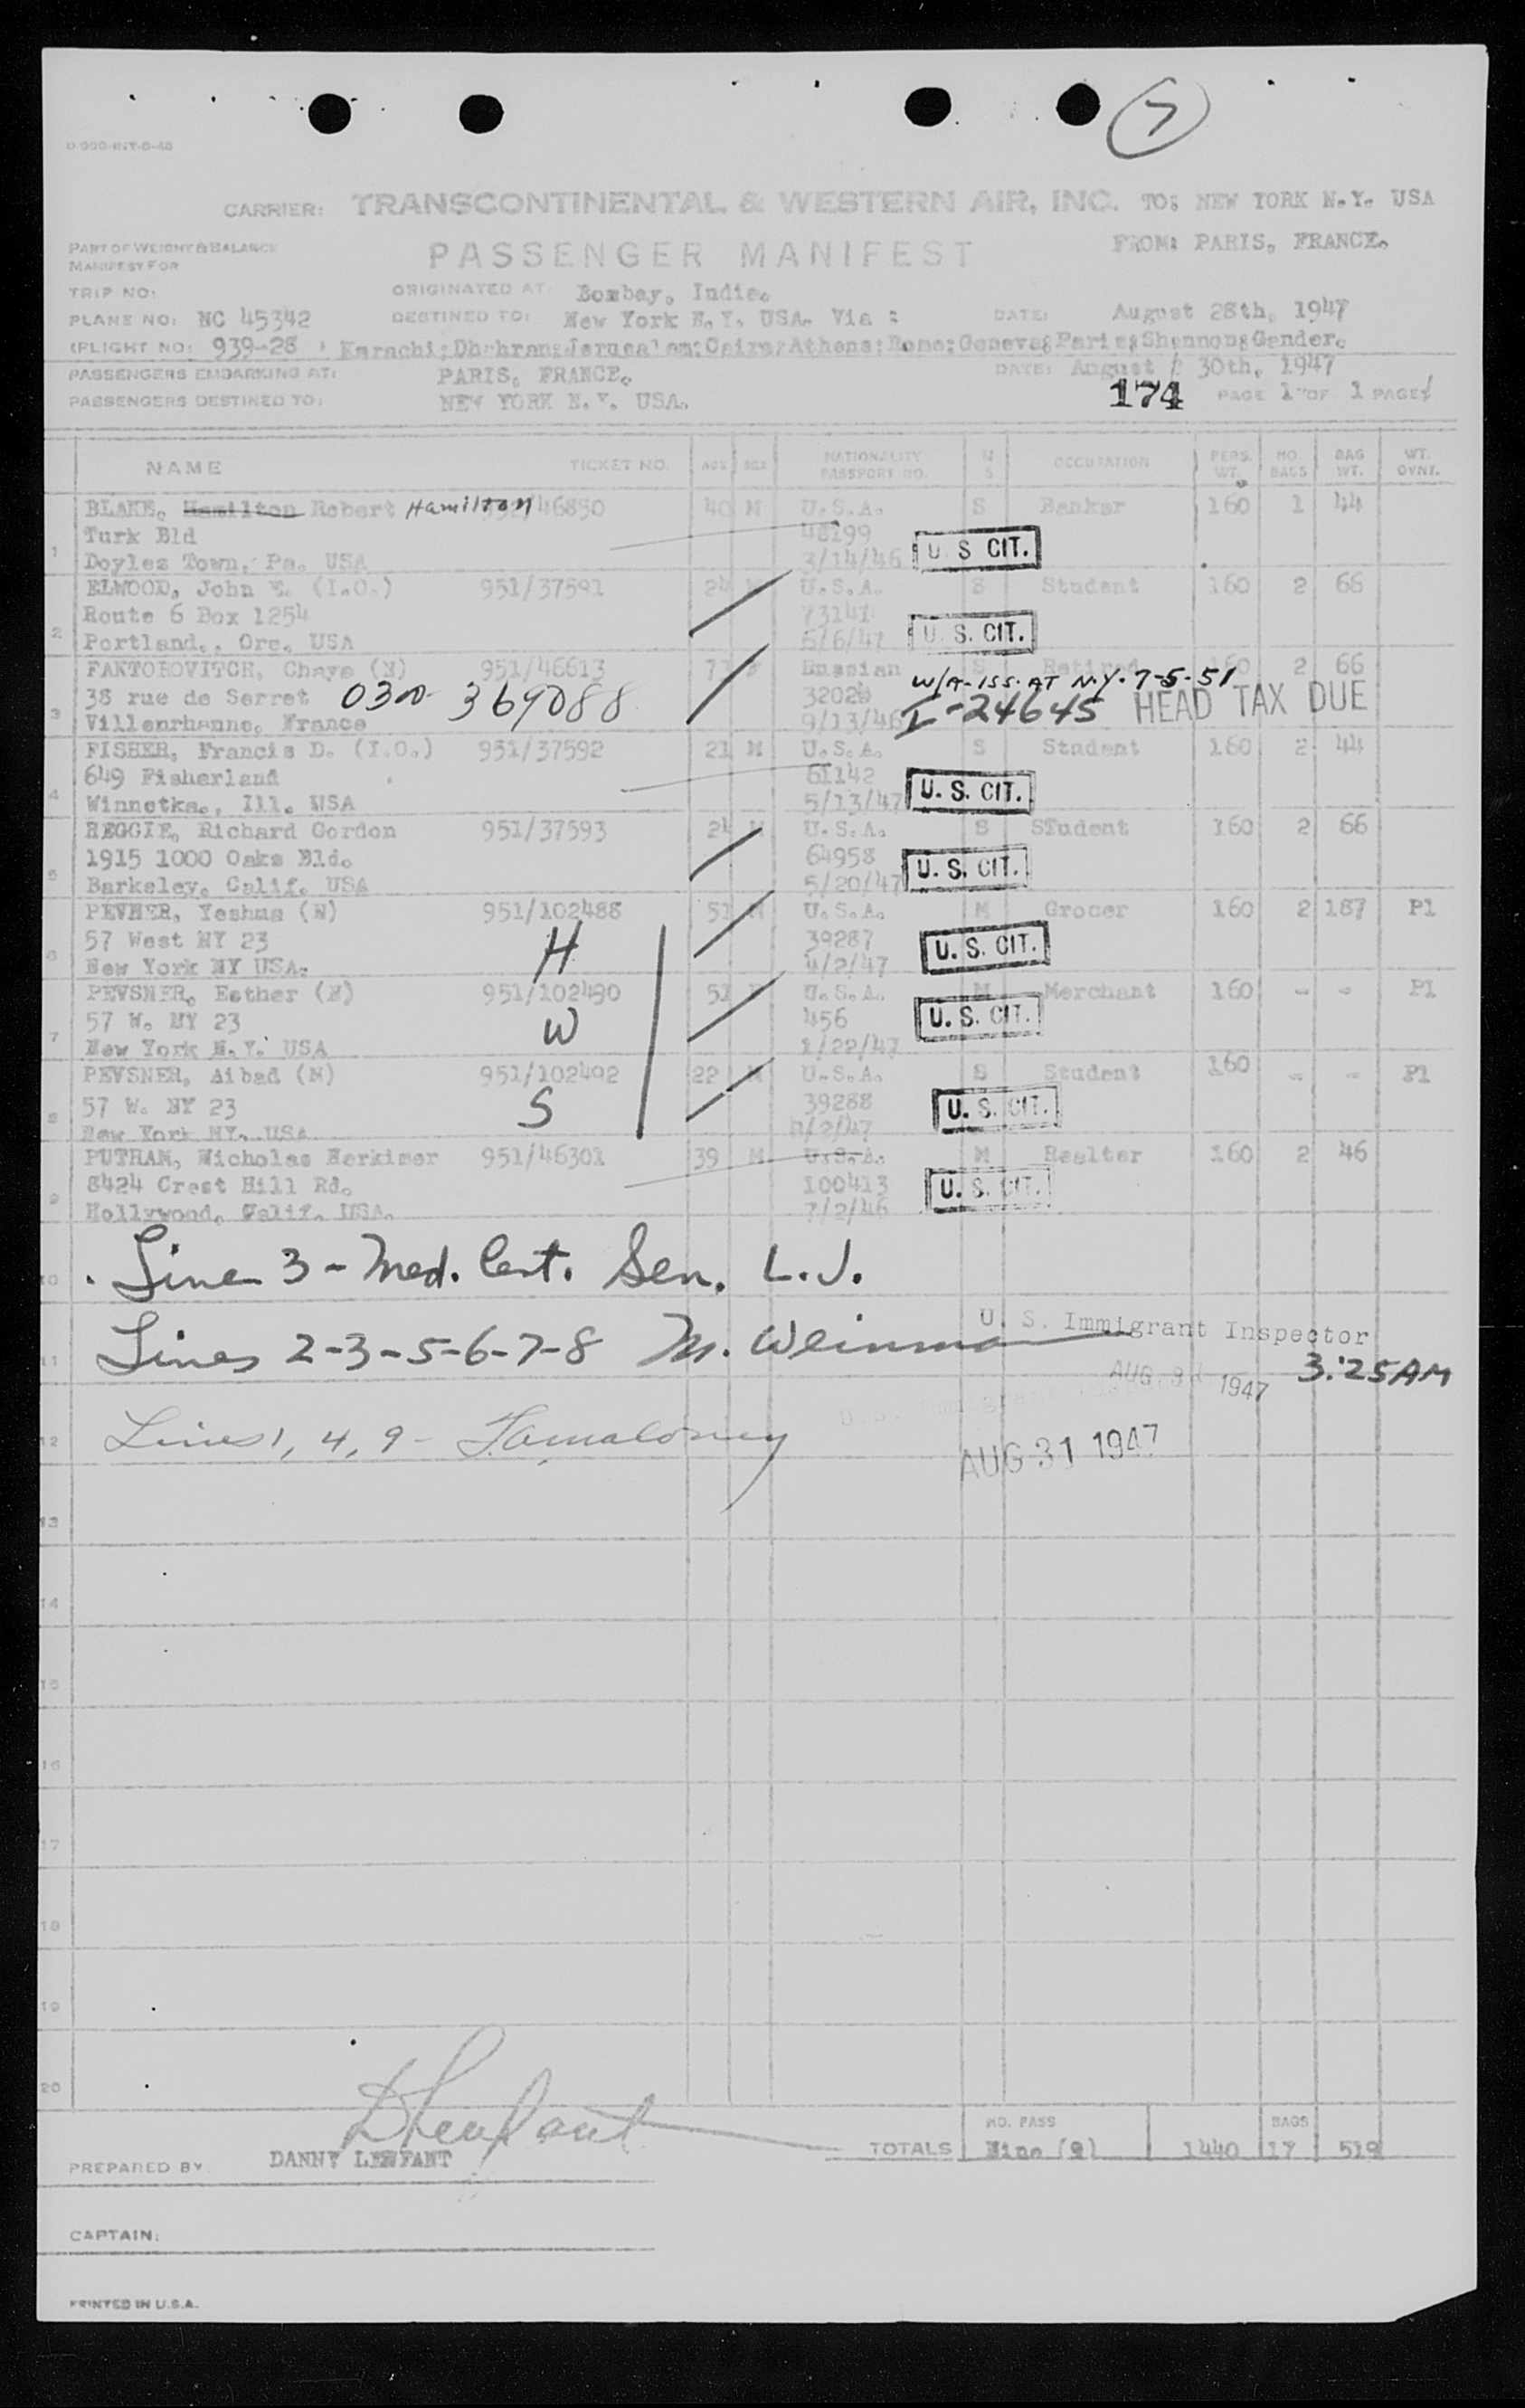 7
CARRIER: TRANSCONTINENTAL & WESTERN AIR, INC. TO: NEW YORK N.Y. USA
PART OF WEIGHT & BALANCE
MANIFEST FOR
PASSENGER MANIFEST
FROM: PARIS, FRANCE.
TRIP NO:
ORIGINATED AT: Bombay, India.
PLANE NO: NC 45342
DESTINED TO: New York N.Y. USA. Via :
DATE: August 28th, 1947
(FLIGHT NO: 939-28 ) Karachi; Dhahran; Jerusalem; Cairo; Athens; Rome; Geneva; Paris; Shannon; Gander.
PASSENGERS EMBARKING AT: PARIS, FRANCE.
DATE: August 30th, 1947
PASSENGERS DESTINED TO: NEW YORK N.Y. USA.
174 PAGE 1 OF 1 PAGES
NAME TICKET NO. AGE SEX NATIONALITY PASSPORT NO. M S OCCUPATION PERS. WT. NO. BAGS BAG WT. WT. OVNT.
BLAKE, Hamilton Robert Hamilton /46850 40 M U.S.A. S Banker 160 1 44
Turk Bld 48199
1 Doyles Town, Pa. USA 3/14/46 U S CIT.
ELWOOD, John E. (I.O.) 951/37591 24 U.S.A. S Student 160 2 66
Route 6 Box 1254 73141
2 Portland., Ore. USA 5/6/47 U. S. CIT.
FANTOROVITCH, Chaya (N) 951/46613 Russian S Retired 160 2 66
W/A-ISS. AT N.Y. 7-5-51
38 rue de Serret 030- 369088 I-24645 HEAD TAX DUE
3 Villenrhanne, France 9/13/46
FISHER, Francis D. (I.O.) 951/37592 21 M U.S.A. S Student 160 2 44
649 Fisherland 61142
4 Winnetka., Ill. USA 5/13/47 U. S. CIT.
REGGIE, Richard Gordon 951/37593 24 U.S.A. S STudent 160 2 66
1915 1000 Oaks Bld. 64958
5 Barkeley, Calif. USA 5/20/47 U. S. CIT.
PEVNER, Yeshua (N) 951/102488 51 U.S.A. M Grocer 160 2 187 P1
57 West NY 23 H 39287
6 New York NY USA. 4/2/47 U. S. CIT.
PEVSNER, Esther (N) 951/102490 51 U.S.A. M Merchant 160 - - P1
57 W. NY 23 W 456
7 New York N.Y. USA 1/22/47 U. S. CIT.
PEVSNER, Aibad (M) 951/102492 22 U.S.A. S Student 160 - - P1
57 W. NY 23 S 39288
8 New York NY. USA /2/47 U. S. CIT.
PUTHAM, Nicholas Herkimer 951/46301 39 M U.S.A. M Realter 160 2 46
8424 Crest Hill Rd. 100413
9 Hollywood, Calif. USA. 7/2/46 U. S. CIT.
10 Line 3 - Med. Cert. Sen. L.J.
U. S. Immigrant Inspector
11 Lines 2-3-5-6-7-8 M. Weinman
AUG 31 1947 3:25AM
12 Lines 1, 4, 9 - F. Maloney
AUG 31 1947
13
14
15
16
17
18
19
20
TOTALS NO. PASS Nine (9) 1440 BAGS 17 519
PREPARED BY: DANNY LENFANT
CAPTAIN:
PRINTED IN U.S.A.